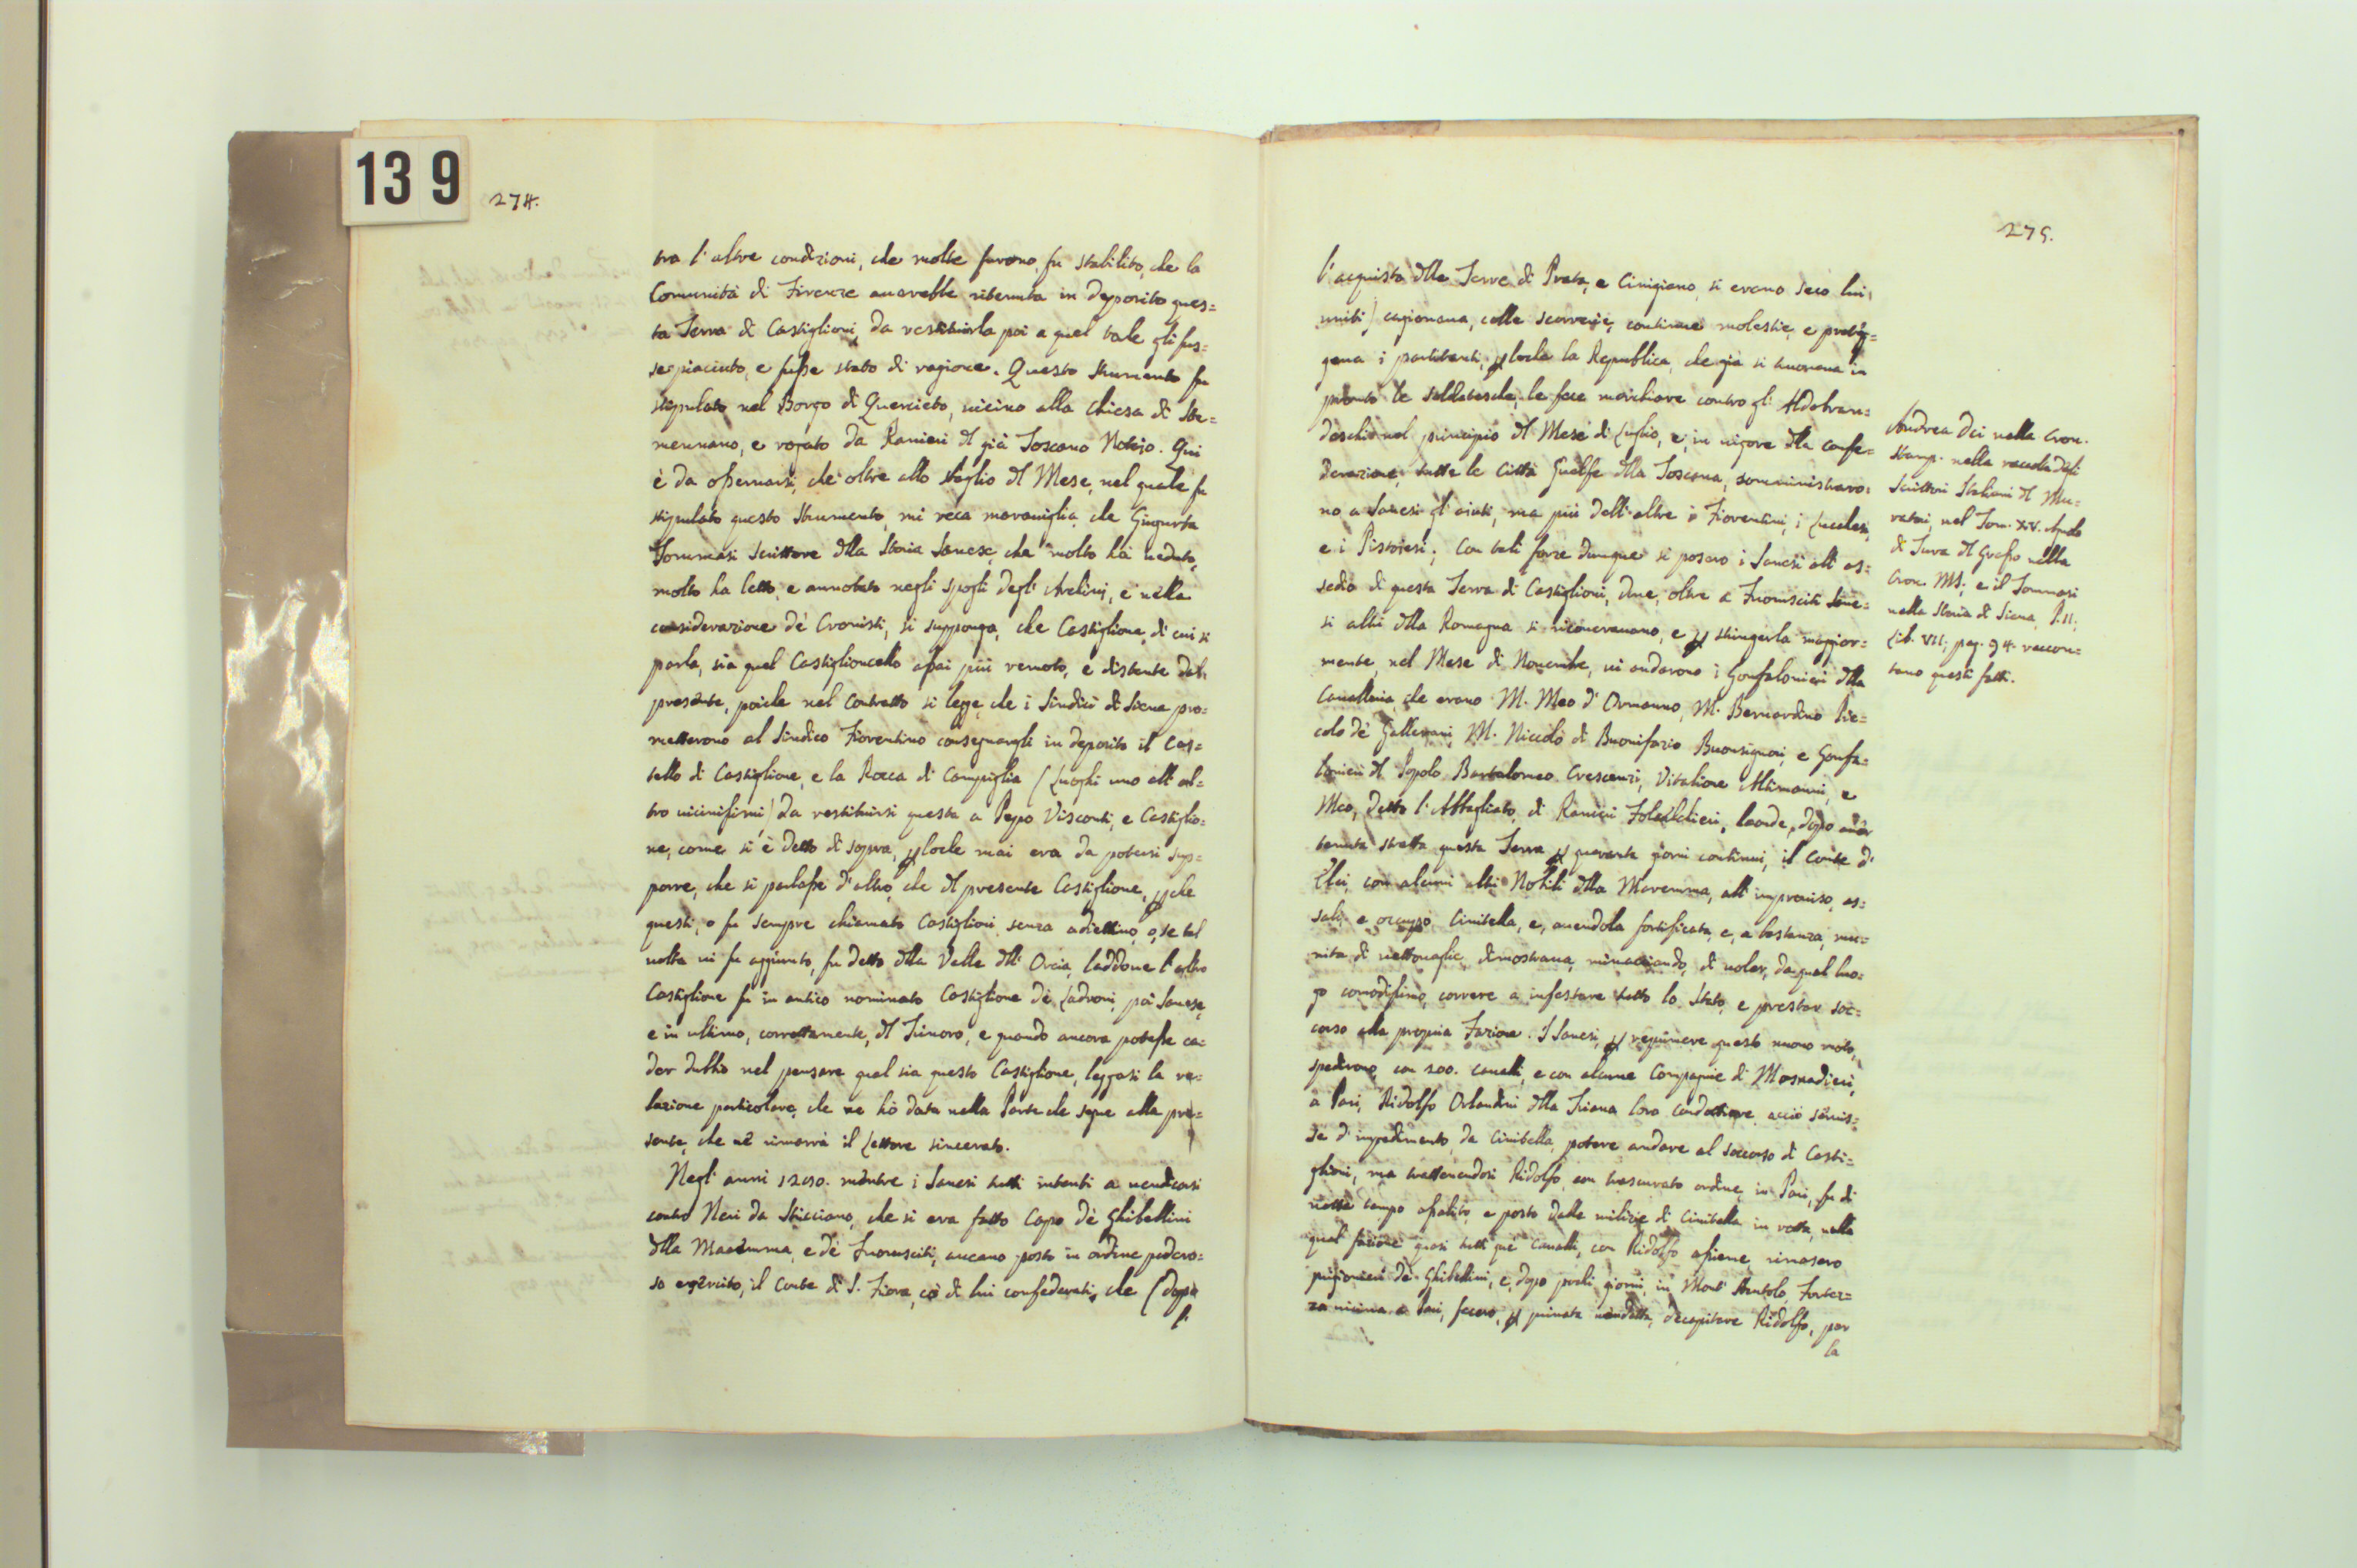 139
274.
tra l'altre condizioni, che molte furono, fu stabilito, che la
Comunità di Firenze auarebbe ritenuta in deposito ques=
ta Terra di Castiglioni, da restituirla poi a quel tale gli fus=
se piaciuto, e fusse stato di ragione. Questo Strumento fu
stipulato nel Borgo di Quercieto, uicino alla Chiesa di Ste=
mennano, e rogato da Ranieri dl già Toscano Notajo. Qui
è da osseruarsi, che oltre allo sbaglio dl Mese, nel quale fu
stipulato questo Strumento, mi reca marauiglia, che Giugurta
Tommasi Scrittore dlla Storia Sanese, che molto hà ueduto,
molto ha letto, e annotato negli spogli degl'Archiuj, e nella
considerazione de' Cronisti, si supponga, che Castiglione, di cui si
parla, sia quel Castiglioncello assai più remoto, e distante dal
presente, poiche nel Contratto si legge, che i Sindici di Siena pro=
metterono al Sindico Fiorentino consegnargli in deposito il Cas=
tello di Castiglione, e la Rocca di Campiglia (Luoghi uno all'al=
tro uicinissimi) da restituirsi questa a Pepo Visconti, e Castiglio=
ne, come si è detto di sopra, ploche mai era da potersi sup=
porre, che si parlasse d'altro, che dl presente Castiglione, pche
questi, o fu sempre chiamato Castiglioni senza adiettiuo, o, se tal
uolta ui fu aggiunto, fu detto dlla Valle dll'Orcia, laddoue l'altro
Castiglione fu in antico nominato Castiglione de' Ladroni, poi Sanese,
e in ultimo, corrottamente, dl Trinoro, e quando ancora potesse ca=
der dubbio nel pensare qual sia questo Castiglione, leggasi la re=
lazione particolare, che ne hò data nella Parte che segue alla pre=
sente, che ne rimarrà il Lettore sincerato.
Negl'anni 1290. mentre i Sanesi tutti intenti a uendicarsi
contro Neri da Sticciano, che si era fatto Capo de' Ghibellini
dlla Maremma, e de' Fuorusciti, aueano posto in ordine podero=
so esercito, il Conte di S. Fiora, co' di lui confederati, che (dopo
l'
275.
l'acquisto dlle Terre di Prata, e Cinigiano, si erano seco lui
uniti) cagionaua, colle scorrerie, continue molestie, e proteg=
geua i partitanti, ploche la Republica, che già si trouaua in
pronto le soldatesche, le fece marchiare contro gl'Aldobran=
deschi nel principio dl Mese di Luglio, e, in uigore dlla Confe=
derazione, tutte le Città Guelfe dlla Toscana, somministraro=
no a Sanesi gl'aiuti, ma più dell'altre i Fiorentini, i Lucchesi,
e i Pistoiesi; Con tali forze dunque si posero i Sanesi all'as=
sedio di questa Terra di Castiglioni, doue, oltre a Fuorusciti Sane=
si altri dlla Romagna si ricouerauano, e p stringerla maggior=
mente, nel Mese di Nouembre, ui andarono i Gonfalonieri dlla
Caualleria, che erano M. Meo d'Ormanno, M. Bernardino Pic=
colo de' Gallerani, M. Niccolò di Buonifazio Buonsignori, e Gonfa=
lonieri dl Popolo Bartalomeo Crescenzi, Vitalione Altimanni, e
Meo, detto l'Abbagliato, di Ranieri Folcalchieri, laonde, dopo auer
tenuta stretta questa Terra p quaranta giorni continui, il Conte d'
Elci, con alcuni altri Nobili dlla Maremma, all'improuiso, as=
salì, e occupò Ciuitella, e, auendola fortificata, e, a bastanza, mu=
nita di uettouaglie, dimostraua, minacciando, di uoler, da quel luo=
go comodissimo, correre a infestare tutto lo Stato, e prestar soc=
corso alla propria Fazione. I Sanesi, p reprimere questo nuouo moto,
spedirono, con 200. Caualli, e con alcune Compagnie di Masnadieri,
a Pari, Ridolfo Orlandini dlla Triana loro Condottiere, acciò seruis=
se d'impedimento, da Ciuitella, potere andare al soccorso di Casti=
glioni, ma trattenendosi Ridolfo, con trascurato ordine, in Pari, fu di
notte tempo assalito, e posto dalle milizie di Ciuitella in rotta, nella
qual fazione quasi tutti que' Caualli, con Ridolfo assieme, rimasero
prigionieri de' Ghibellini, e, dopo pochi giorni, in Mont'Antolo, Fortez=
za uicina a Pari, fecero, p priuata uendetta, decapitare Ridolfo, per
la
Andrea Dei nella Cron.
Stamp. nella raccolta degli
Scrittori Italiani dl Mu=
ratori, nel Tom. XV. Agnolo
di Tura dl Grasso nella
Cron. MS. e il Tommasi
nella Storia di Siena, P. II.
Lib. VII. pag. 94. raccon=
tano questi fatti.